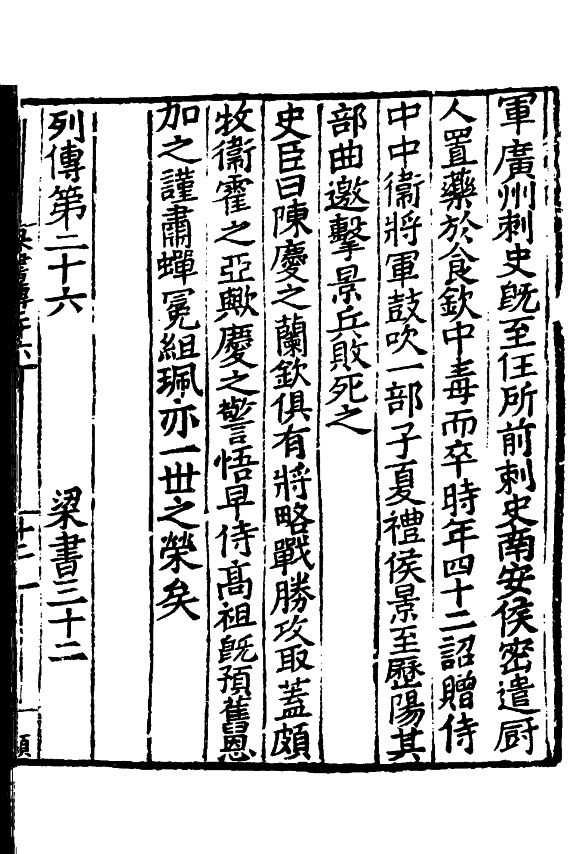 軍廣州刺史旣至任所前刺史南安侯密遣厨
人置藥於食欽中毒而卒時年四十二詔贈侍
中中衞將軍鼓吹一部子夏禮侯景至歷陽其
部曲邀擊景兵敗死之
史臣曰陳慶之蘭欽俱有將略戰勝攻取蓋頗
牧衞霍之亞歟慶之警悟早侍高祖旣預舊恩
加之謹肅蟬冕組珮亦一世之榮矣
列傳第二十六 梁書三十二